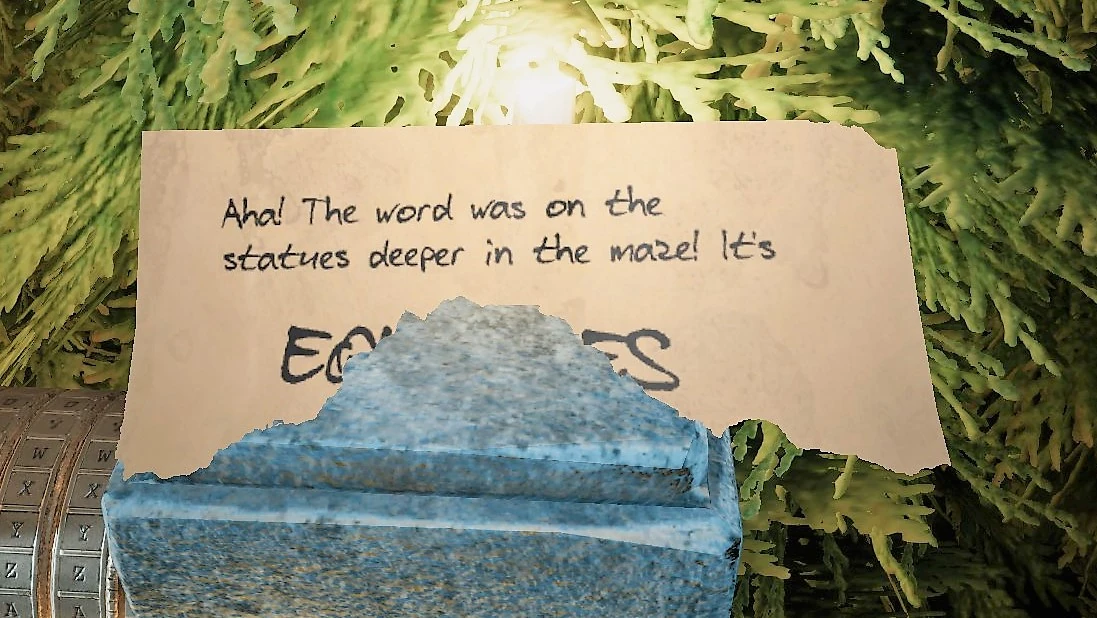 Aha! The word was on the
statues deeper in the maze! It's
W W
X X
Y Y
Z Z
A A